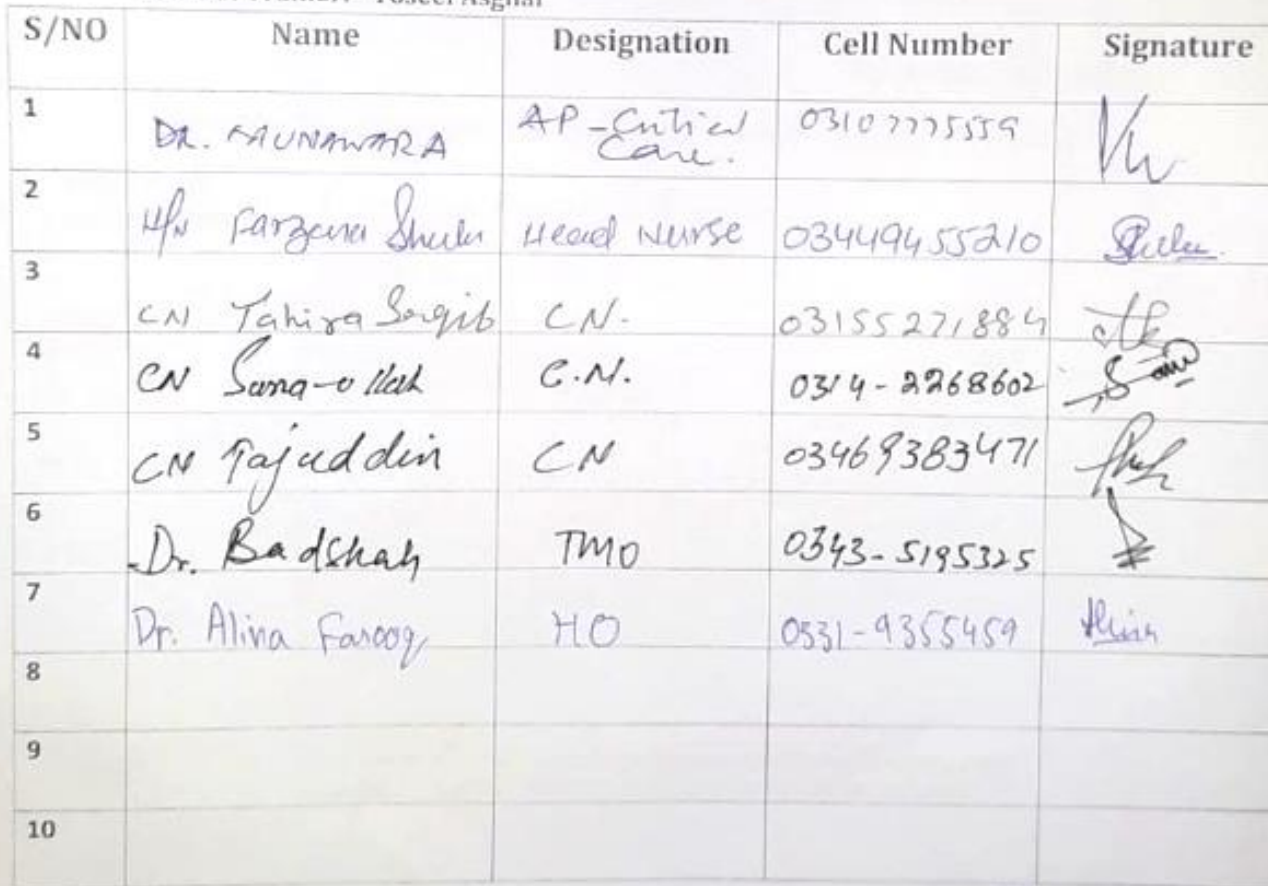 Asghar
S/NO Name Designation Cell Number Signature
1 DR. MUNAWARA AP-Critical Care. 03107775559
2 H/N Farzana Head Nurse 03449455210
3 CN Tahira CN. 03155271884
4 CN Sana-ollah C.N. 0314-2268602
5 CN Tajuddin CN 03469383471
6 Dr. Badshah TMO 0343-5195325
7 Dr. Alina Farooq HO 0331-9355459
8
9
10